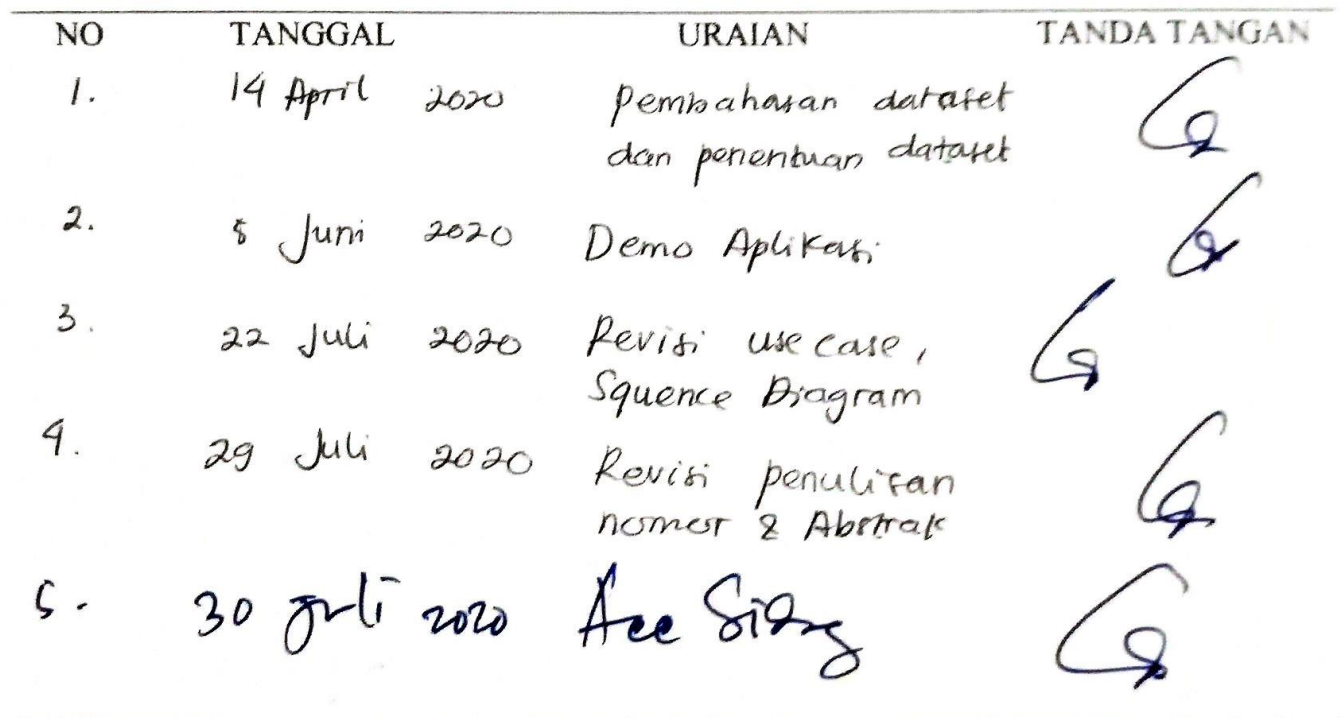 NO TANGGAL URAIAN TANDA TANGAN
1. 14 April 2020 Pembahasan dataset
dan penentuan dataset
2. 8 Juni 2020 Demo Aplikasi
3. 22 Juli 2020 Revisi use case,
Squence Diagram
4. 29 Juli 2020 Revisi penulisan
nomor & Abstrak
5. 30 Juli 2020 Acc Sidang